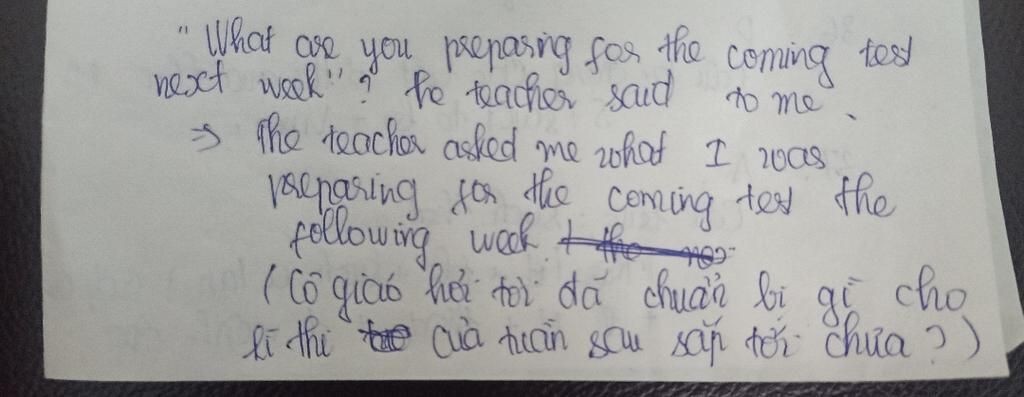 "What are you preparing for the coming test
next week"? The teacher said to me.
=> The teacher asked me what I was
preparing for the coming test the
following week.
(Cô giáo hỏi tôi đã chuẩn bị gì cho
kì thi của tuần sau sắp tới chưa?)